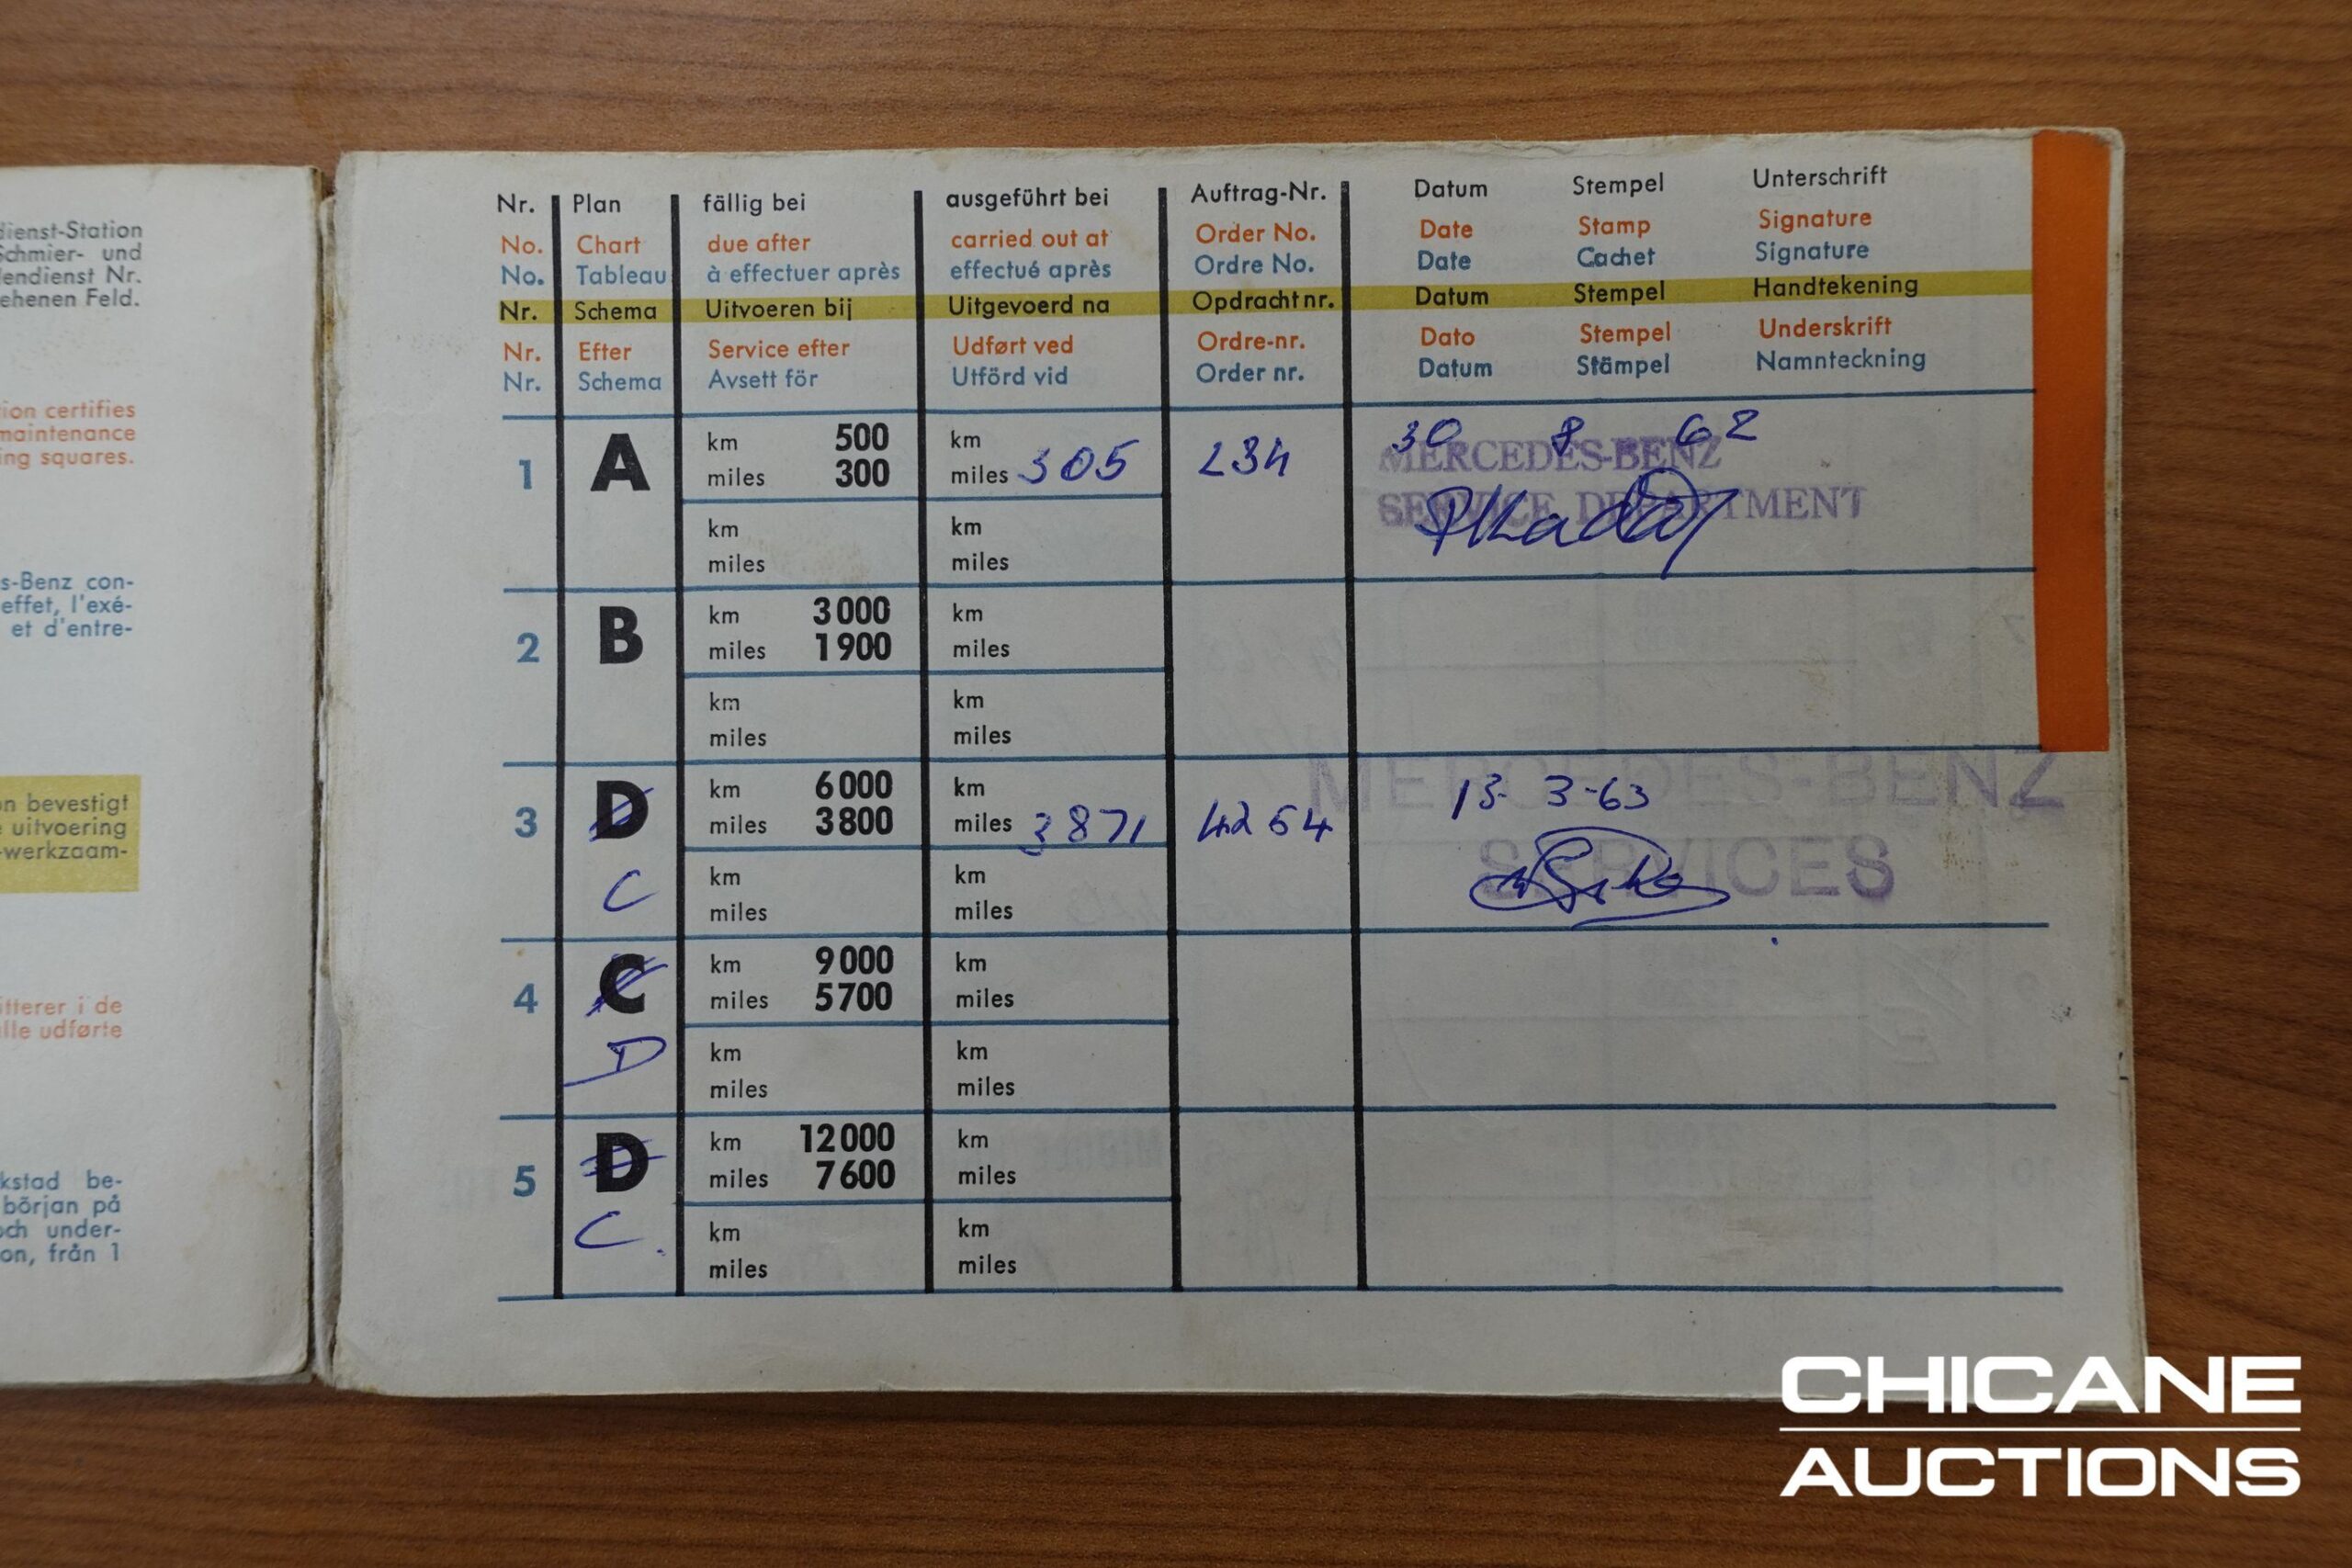 dienst-Station
Schmier- und
endienst Nr.
ehenen Feld.
ion certifies
maintenance
ing squares.
s-Benz con-
effet, l'exé-
et d'entre-
n bevestigt
e uitvoering
-werkzaam-
itterer i de
lle udførte
kstad be-
början på
och under-
on, från 1
Nr. Plan fällig bei ausgeführt bei Auftrag-Nr. Datum Stempel Unterschrift
No. Chart due after carried out at Order No. Date Stamp Signature
No. Tableau à effectuer après effectué après Ordre No. Date Cachet Signature
Nr. Schema Uitvoeren bij Uitgevoerd na Opdracht nr. Datum Stempel Handtekening
Nr. Efter Service efter Udført ved Ordre-nr. Dato Stempel Underskrift
Nr. Schema Avsett för Utförd vid Order nr. Datum Stämpel Namnteckning
1 A km 500 km 30 8 62
miles 300 miles 305 234 MERCEDES-BENZ
SERVICE DEPARTMENT
km km
miles miles
2 B km 3000 km
miles 1900 miles
km km
miles miles
MERCEDES-BENZ
3 D km 6000 km 13-3-63
miles 3800 miles 3871 4264
SERVICES
C km km
miles miles
4 C km 9000 km
miles 5700 miles
D km km
miles miles
5 D km 12000 km
miles 7600 miles
C. km km
miles miles
CHICANE
AUCTIONS